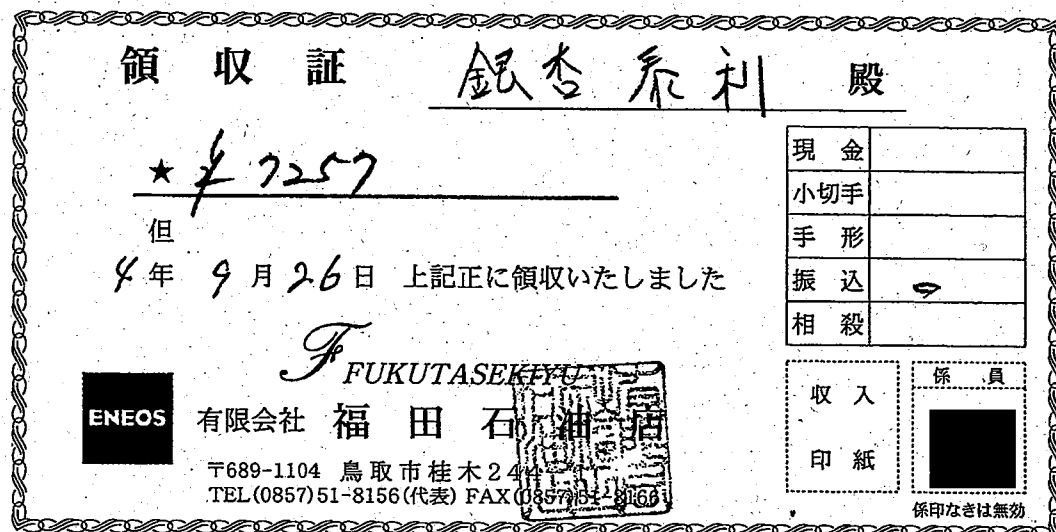 領収証 銀杏泰利 殿
★ ¥7257
但
4年 9月26日 上記正に領収いたしました
現金
小切手
手形
振込
相殺
FUKUTASEKIYU
ENEOS 有限会社 福田石油店
〒689-1104 鳥取市桂木244
TEL(0857)51-8156(代表) FAX(0857)51-8166
収入
印紙
係員
係印なきは無効